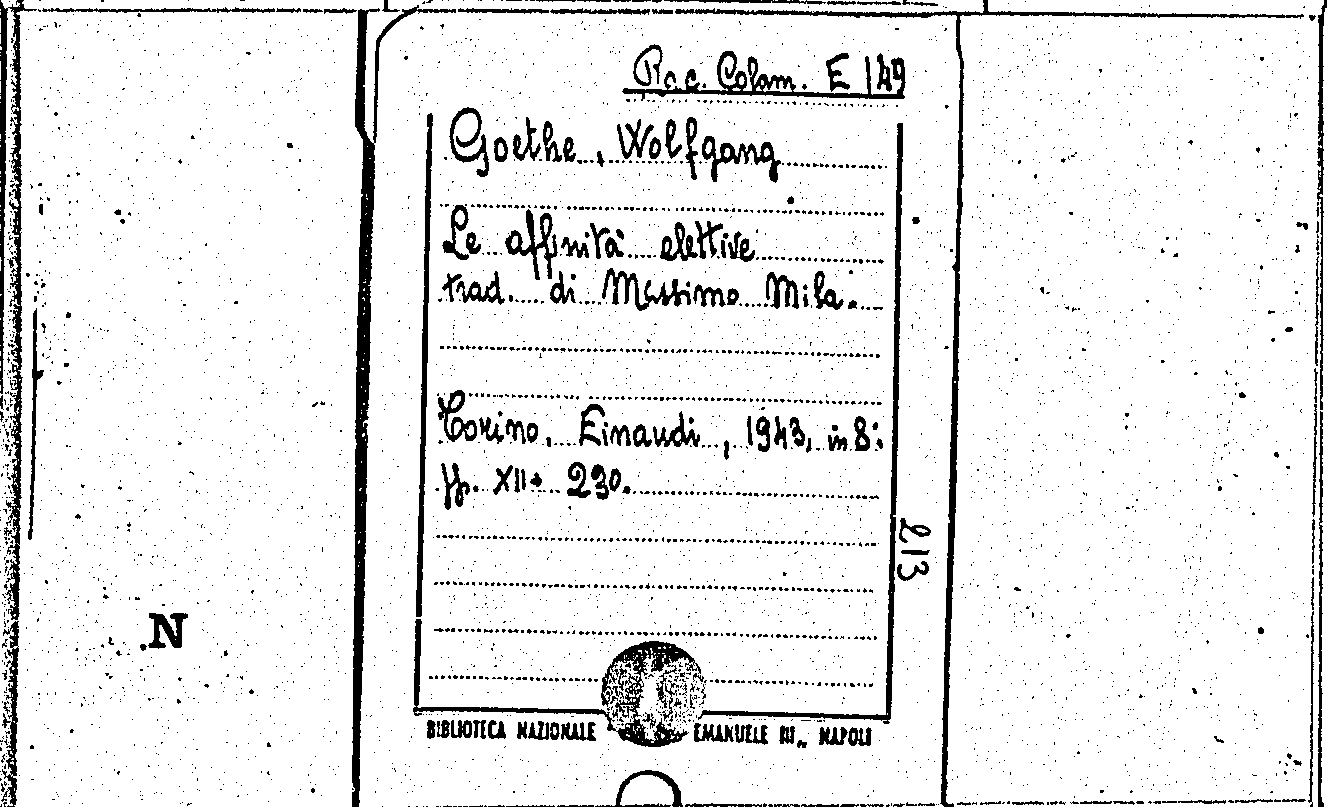 Rac. Colam. E 149
Goethe, Wolfgang
Le affinità elettive
trad. di Massimo Mila.
Torino, Einaudi, 1943, in 8°.
pp. XII + 230.
213
N
BIBLIOTECA NAZIONALE " EMANUELE III„ NAPOLI